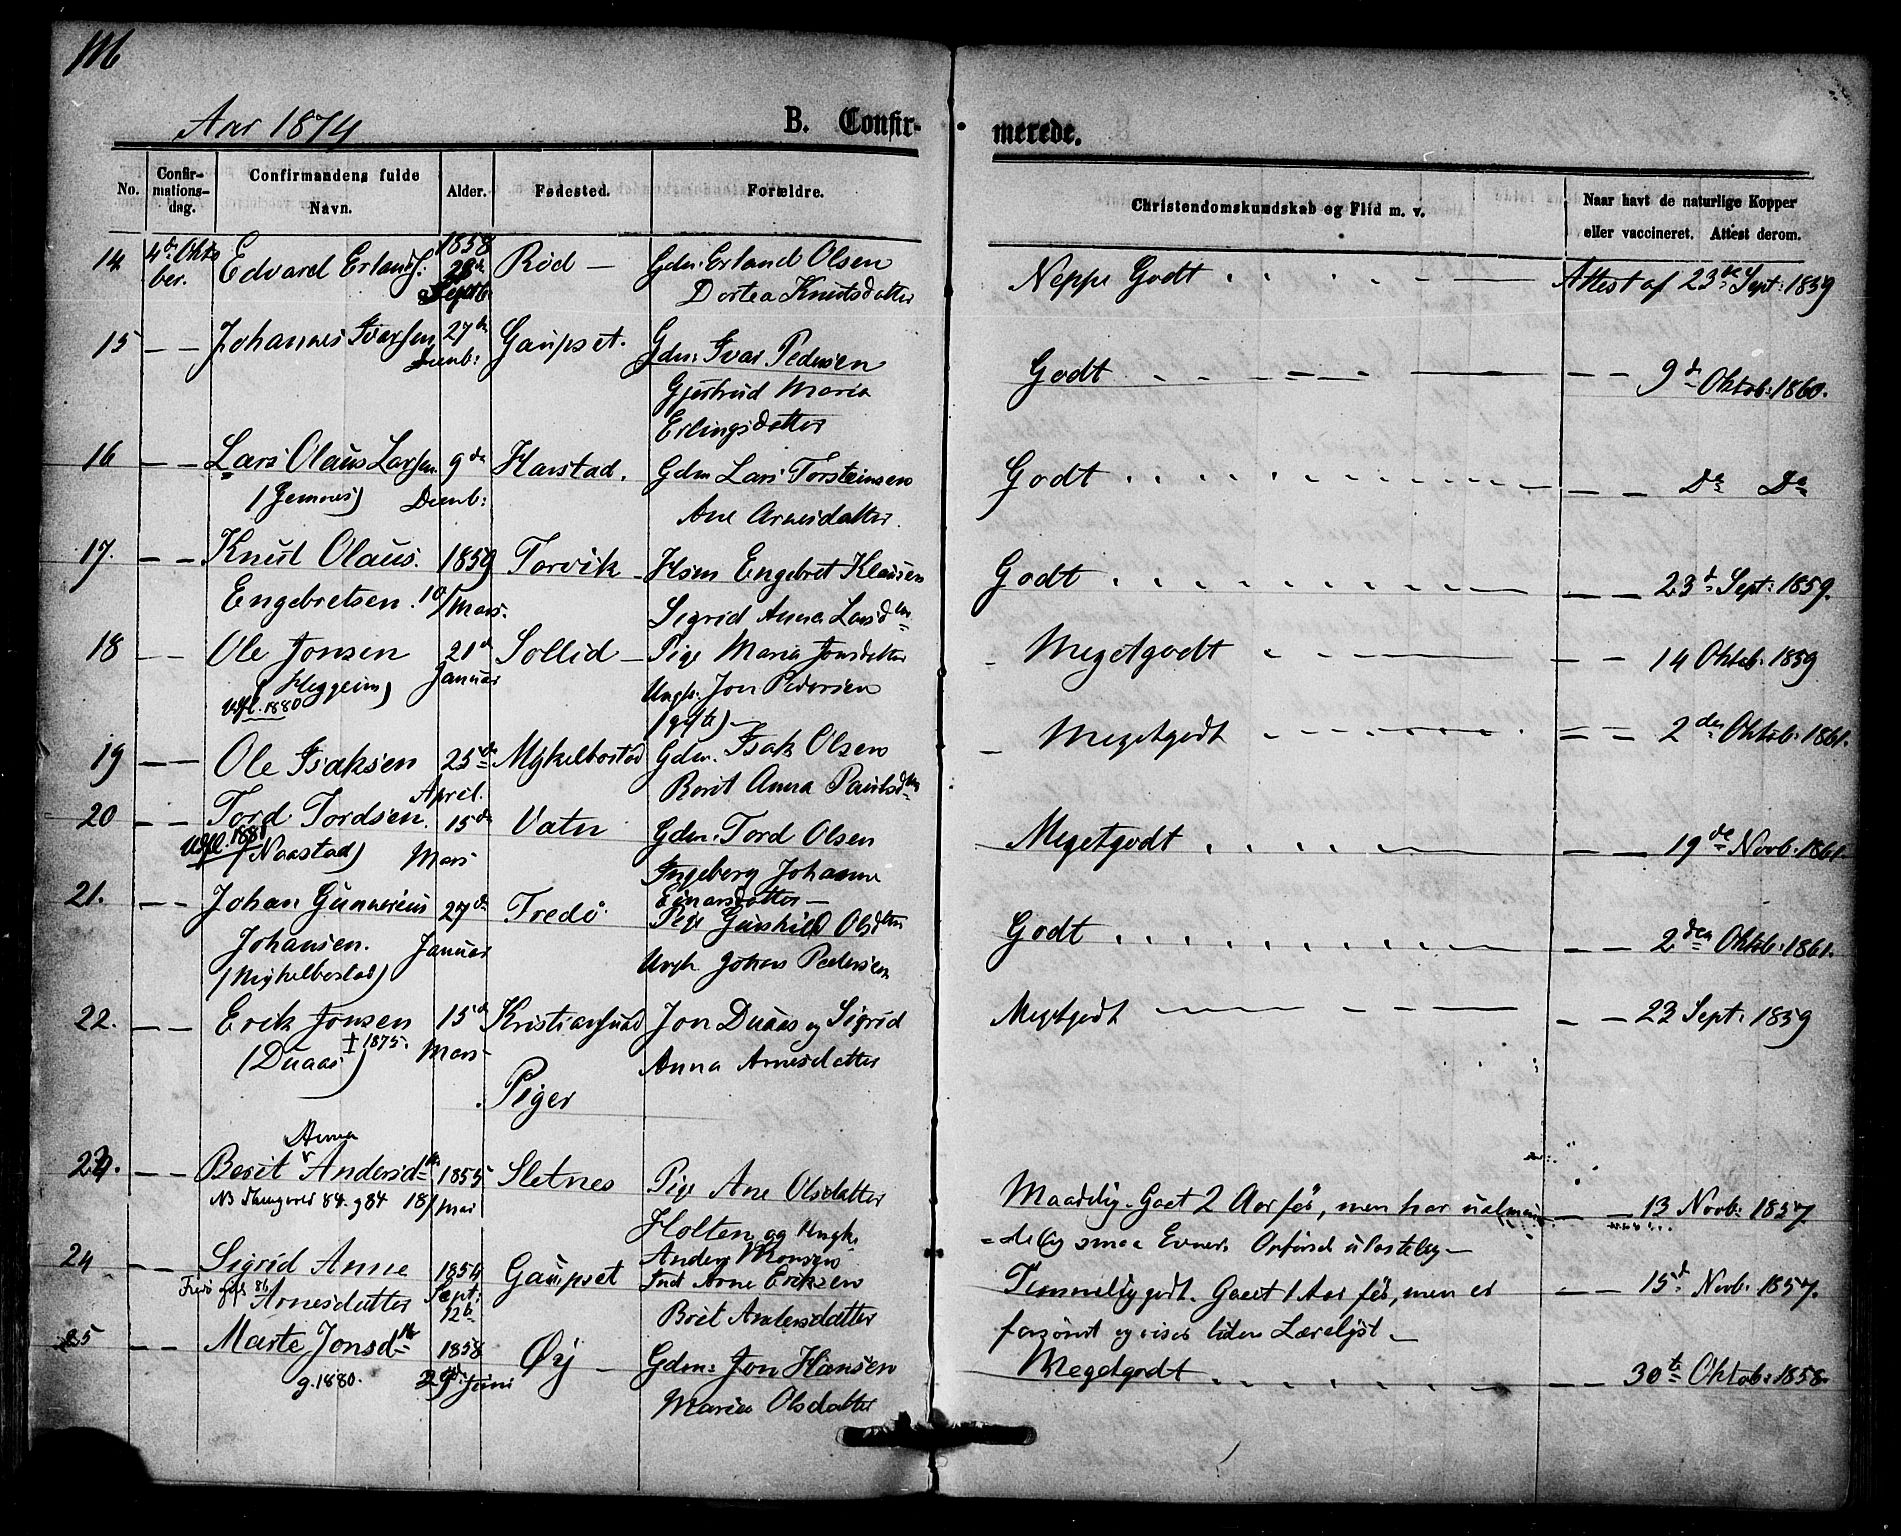 Aar 1874
B. Confir-
merede.
No.
Confir-
mations-
dag.
Confirmandens fulde
Navn.
Alder.
Fødested.
Forældre.
Christendomskundskab og Flid m. v.
Naar havt de naturlige Kopper
eller vaccineret. Attest derom.
14. 4de Okto Edvard Erlands: 1858 Rød — Gdm: Erland Olsen Neppe Godt Attest af 23de Sept: 1859
ber. 28de Dortea Knutsdatter
Septb:
15 — — Johannes Ivarsen 27de Gaupset. Gdm: Ivar Pedersen Godt — — 9de Oktob: 1860.
Decmb: Gjertrud Maria
Erlingsdatter
16 — — Lars Olaus Larsen 9de Harstad. Gdm Lars Torsteinsen Godt — — Do Do
(Jemnes) Decmb: Ane Arnesdatter.
17. — — Knut Olaus 1859 Torvik — Hsm Engebret Klausen Godt — — 23de Sept: 1859.
Engebretsen. 10/Mars. Sigrid Anna Larsdtr
18 — — Ole Jonsen 21de Sollid — Pige Maria Jonsdatter Megetgodt — — 14 Oktob. 1859
(Heggeim) Januar Ungk. Jon Pedersen
Udfl. 1880 (gift) —
19 — — Ole Isaksen 25de Mykelbostad Gdm. Isak Olsen Megetgodt — — 2den Oktob. 1861.
April. Berit Anna Paulsdtr
20 — — Tord Tordsen 15de Vatn Gdm. Tord Olsen Megetgodt — — 19de Novb. 1861
Udfl. 1881 (Naastad) Mars Ingeborg Johanne
Einarsdatter —
21. — — Johan Gunnerius 27de Tredø. Pige Gunhild Olsdtr Godt — — 2den Oktob. 1861.
Johansen. Januar Ungk. Johan Pedersen
(Mykelbostad)
22. — — Erik Jonsen 15de Kristiansund Jon Duaas og Sigrid Megetgodt — — 23 Sept. 1859
‡ 1875. (Duaas) Mars Anna Arnesdatter
Piger
Anna
23. — — Berit Andersdtr 1855 Sletnes Pige Ane Olsdatter Maadelig. Gaaet 2 Aar før, men har ualmin — — 13 Novb: 1857.
84. g 84 18/Mai Holten og Ungk. = delig smaa Evner. Opførsel upaaklag —
Anders Monsen
24 — — Sigrid Anne 1854 Gaupset Ind Arne Eriksen Temmeliggodt. Gaaet 1 Aar før, men er — — 15de Novb. 1857.
Arnesdatter Sept: 12te Brit Andersdatter forsømt og viser liden Lærelyst —
25 — — Marte Jonsdtr 1858 Øij — Gdm: Jon Hansen Megetgodt — — 30te Oktob: 1858.
g. 1880. 29de Juni Maria Olsdatter